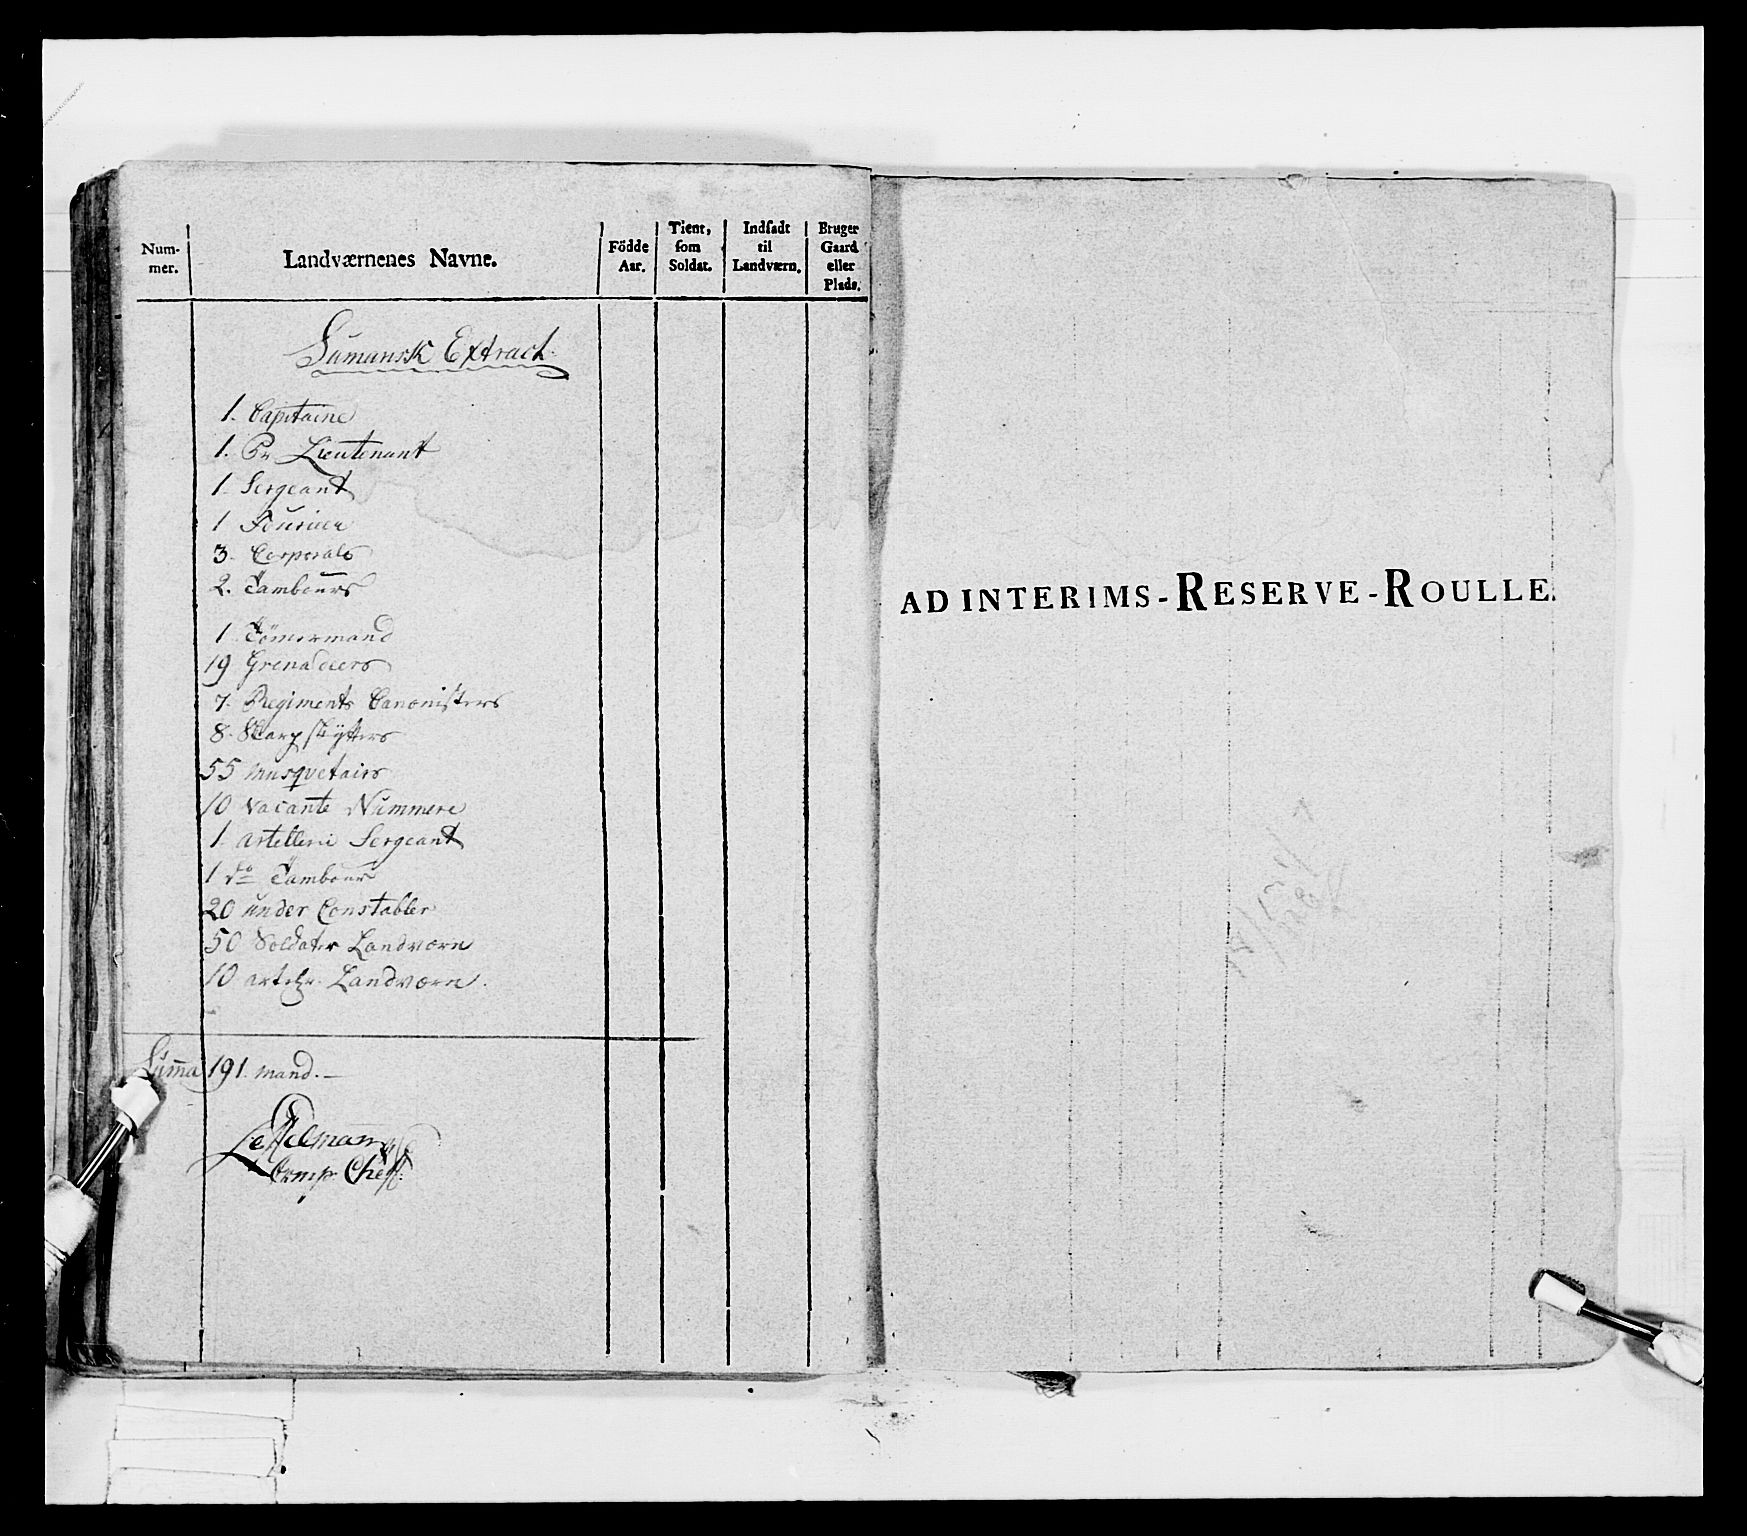 Num-
mer.
Landværnenes Navne.
Födde
Aar.
Tient,
som
Soldat.
Indsadt
til
Landværn.
Bruger
Gaard
eller
Plads.
Sumansk Extract.
1. Capitaine
1. Pr Lieutenant
1. Sergeant
1 Fourier
3. Corporals
2. Tambours
1 Tömermand
19 Grenadeers
7. Regiments Canonisters
8. Skarpskÿtters
55 Musquetairs
10 vacante Nummere
1 Artelleri Sergeant
1 do Tambour
20 under Constabler
50 Soldater Landværn
10 Artelr. Landværn.
Summa 191. mand.—
Comp. Cheff.
AD INTERIMS-RESERVE-ROULLE.